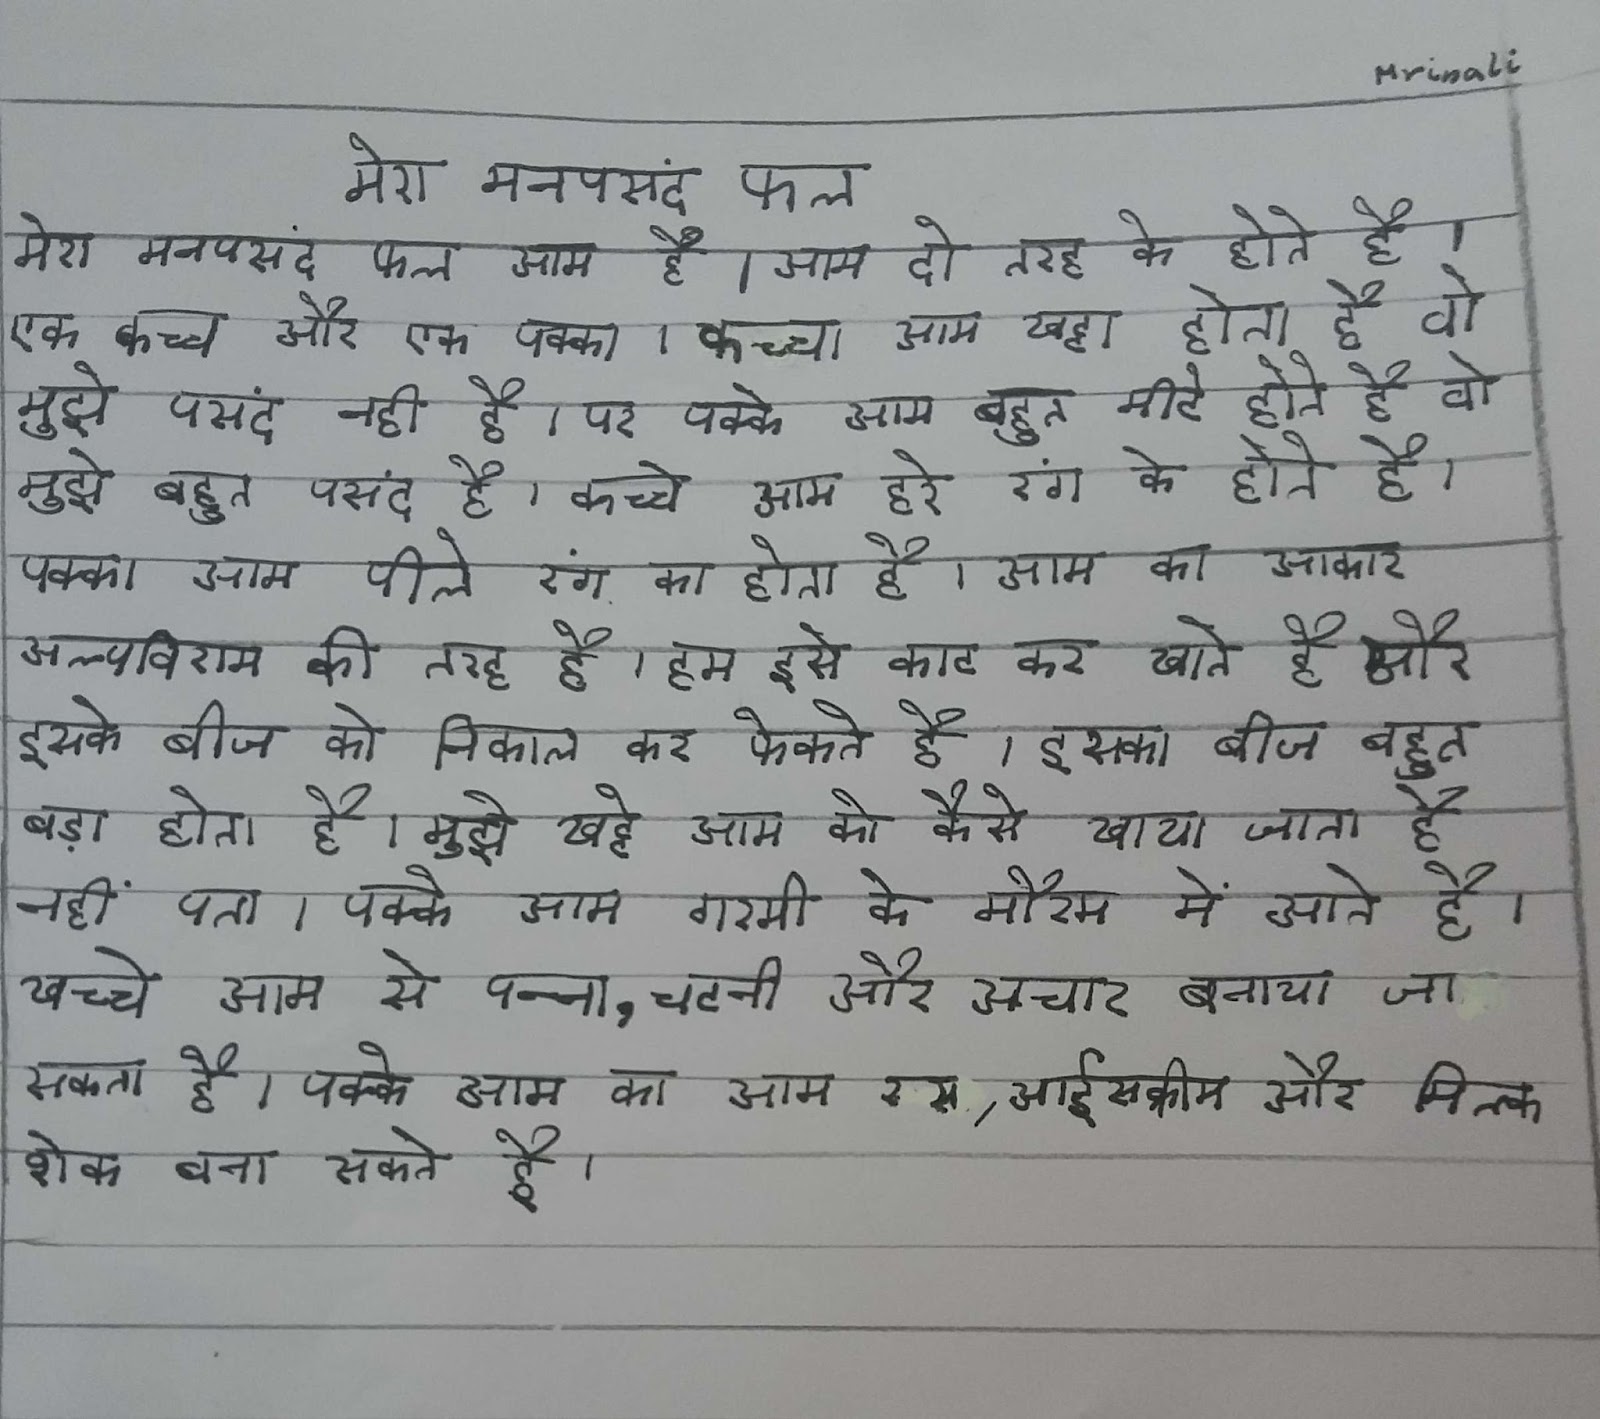 Mrinali
मेरा मनपसंद फल
मेरा मनपसंद फल आम है । आम दो तरह के होते है ।
एक कच्च और एक पक्का । कच्चा आम खट्टा होता है वो
मुझे पसंद नही है । पर पक्के आम बहुत मीटे होते है वो
मुझे बहुत पसंद है । कच्चे आम हरे रंग के होते है ।
पक्का आम पीले रंग का होता है । आम का आकार
अल्पविराम की तरह है । हम इसे काट कर खाते है और
इसके बीज को निकाल कर फेकते है । इसका बीज बहुत
बड़ा होता है । मुझे खट्टे आम को कैसे खाया जाता है
नहीं पता । पक्के आम गरमी के मौरम में आते है ।
खच्चे आम से पन्ना, चटनी और अचार बनाया जा
सकता है । पक्के आम का आम रस, आईसक्रीम और मिल्क
शेक बना सकते है ।